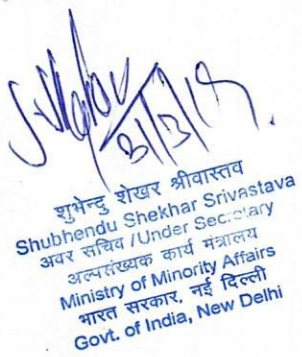 31/3/17
शुभेन्दु शेखर श्रीवास्तव
Shubhendu Shekhar Srivastava
अवर सचिव /Under Secretary
अल्पसंख्यक कार्य मंत्रालय
Ministry of Minority Affairs
भारत सरकार, नई दिल्ली
Govt. of India, New Delhi